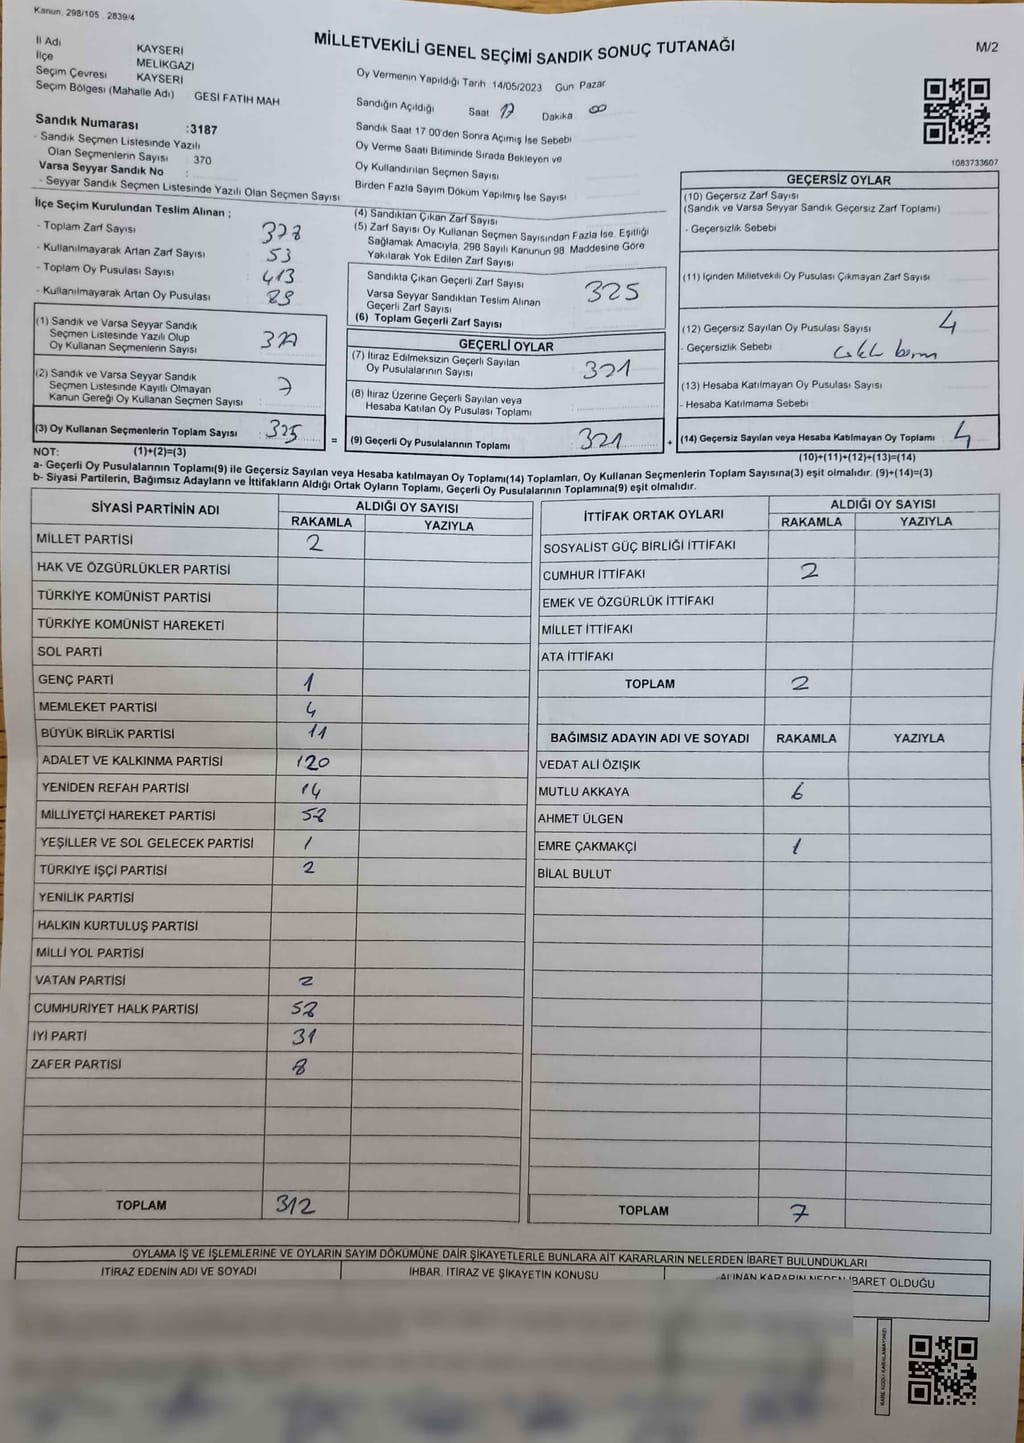 Kanun. 298/105 , 2839/4
MİLLETVEKİLİ GENEL SEÇİMİ SANDIK SONUÇ TUTANAĞI
M/2
İl Adı KAYSERİ
İlçe MELİKGAZİ
Seçim Çevresi KAYSERİ
Seçim Bölgesi (Mahalle Adı) GESİ FATİH MAH
Sandık Numarası :3187
- Sandık Seçmen Listesinde Yazılı
Olan Seçmenlerin Sayısı 370
Varsa Seyyar Sandık No :
- Seyyar Sandık Seçmen Listesinde Yazılı Olan Seçmen Sayısı
İlçe Seçim Kurulundan Teslim Alınan ;
- Toplam Zarf Sayısı 378
- Kullanılmayarak Artan Zarf Sayısı 53
- Toplam Oy Pusulası Sayısı 413
- Kullanılmayarak Artan Oy Pusulası
(1) Sandık ve Varsa Seyyar Sandık
Seçmen Listesinde Yazılı Olup
Oy Kullanan Seçmenlerin Sayısı
(2) Sandık ve Varsa Seyyar Sandık
Seçmen Listesinde Kayıtlı Olmayan
Kanun Gereği Oy Kullanan Seçmen Sayısı
(3) Oy Kullanan Seçmenlerin Toplam Sayısı : 325
Oy Vermenin Yapıldığı Tarih 14/05/2023 Gün Pazar
Sandığın Açıldığı Saat 17 Dakika 00
Sandık Saat 17 00'den Sonra Açımış İse Sebebi
Oy Verme Saati Bitiminde Sırada Bekleyen ve
Oy Kullandırılan Seçmen Sayısı
Birden Fazla Sayım Döküm Yapılmış İse Sayısı
(4) Sandıktan Çıkan Zarf Sayısı
(5) Zarf Sayısı Oy Kullanan Seçmen Sayısından Fazla İse, Eşitliği
Sağlamak Amacıyla, 298 Sayılı Kanunun 98 Maddesine Göre
Yakılarak Yok Edilen Zarf Sayısı
Sandıkta Çıkan Geçerli Zarf Sayısı
Varsa Seyyar Sandıktan Teslim Alınan
Geçerli Zarf Sayısı
(6) Toplam Geçerli Zarf Sayısı 325
GEÇERLİ OYLAR
(7) İtiraz Edilmeksizin Geçerli Sayılan
Oy Pusulalarının Sayısı 321
(8) İtiraz Üzerine Geçerli Sayılan veya
Hesaba Katılan Oy Pusulası Toplamı
= (9) Geçerli Oy Pusulalarının Toplamı 321
1083733607
GEÇERSİZ OYLAR
(10) Geçersiz Zarf Sayısı
(Sandık ve Varsa Seyyar Sandık Geçersiz Zarf Toplamı)
- Geçersizlik Sebebi
(11) İçinden Milletvekili Oy Pusulası Çıkmayan Zarf Sayısı
(12) Geçersiz Sayılan Oy Pusulası Sayısı 4
- Geçersizlik Sebebi
(13) Hesaba Katılmayan Oy Pusulası Sayısı
- Hesaba Katılmama Sebebi
+ (14) Geçersiz Sayılan veya Hesaba Katılmayan Oy Toplamı 4
NOT: (1)+(2)=(3) (10)+(11)+(12)+(13)=(14)
a- Geçerli Oy Pusulalarının Toplamı(9) ile Geçersiz Sayılan veya Hesaba katılmayan Oy Toplamı(14) Toplamları, Oy Kullanan Seçmenlerin Toplam Sayısına(3) eşit olmalıdır. (9)+(14)=(3)
b- Siyasi Partilerin, Bağımsız Adayların ve İttifakların Aldığı Ortak Oyların Toplamı, Geçerli Oy Pusulalarının Toplamına(9) eşit olmalıdır.
SİYASİ PARTİNİN ADI ALDIĞI OY SAYISI
RAKAMLA YAZIYLA
MİLLET PARTİSİ 2
HAK VE ÖZGÜRLÜKLER PARTİSİ
TÜRKİYE KOMÜNİST PARTİSİ
TÜRKİYE KOMÜNİST HAREKETİ
SOL PARTİ
GENÇ PARTİ 1
MEMLEKET PARTİSİ 4
BÜYÜK BİRLİK PARTİSİ 11
ADALET VE KALKINMA PARTİSİ 120
YENİDEN REFAH PARTİSİ 14
MİLLİYETÇİ HAREKET PARTİSİ 58
YEŞİLLER VE SOL GELECEK PARTİSİ 1
TÜRKİYE İŞÇİ PARTİSİ 2
YENİLİK PARTİSİ
HALKIN KURTULUŞ PARTİSİ
MİLLİ YOL PARTİSİ
VATAN PARTİSİ 2
CUMHURİYET HALK PARTİSİ 58
İYİ PARTİ 31
ZAFER PARTİSİ 8
TOPLAM 312
İTTİFAK ORTAK OYLARI ALDIĞI OY SAYISI
RAKAMLA YAZIYLA
SOSYALİST GÜÇ BİRLİĞİ İTTİFAKI
CUMHUR İTTİFAKI 2
EMEK VE ÖZGÜRLÜK İTTİFAKI
MİLLET İTTİFAKI
ATA İTTİFAKI
TOPLAM 2
BAĞIMSIZ ADAYIN ADI VE SOYADI RAKAMLA YAZIYLA
VEDAT ALİ ÖZIŞIK
MUTLU AKKAYA 6
AHMET ÜLGEN
EMRE ÇAKMAKÇİ 1
BİLAL BULUT
TOPLAM 7
OYLAMA İŞ VE İŞLEMLERİNE VE OYLARIN SAYIM DÖKÜMÜNE DAİR ŞİKAYETLERLE BUNLARA AİT KARARLARIN NELERDEN İBARET BULUNDUKLARI
İTİRAZ EDENİN ADI VE SOYADI İHBAR, İTİRAZ VE ŞİKAYETİN KONUSU ALINAN KARARIN NEDEN İBARET OLDUĞU
KARE KODU KARALAMAYINIZ!